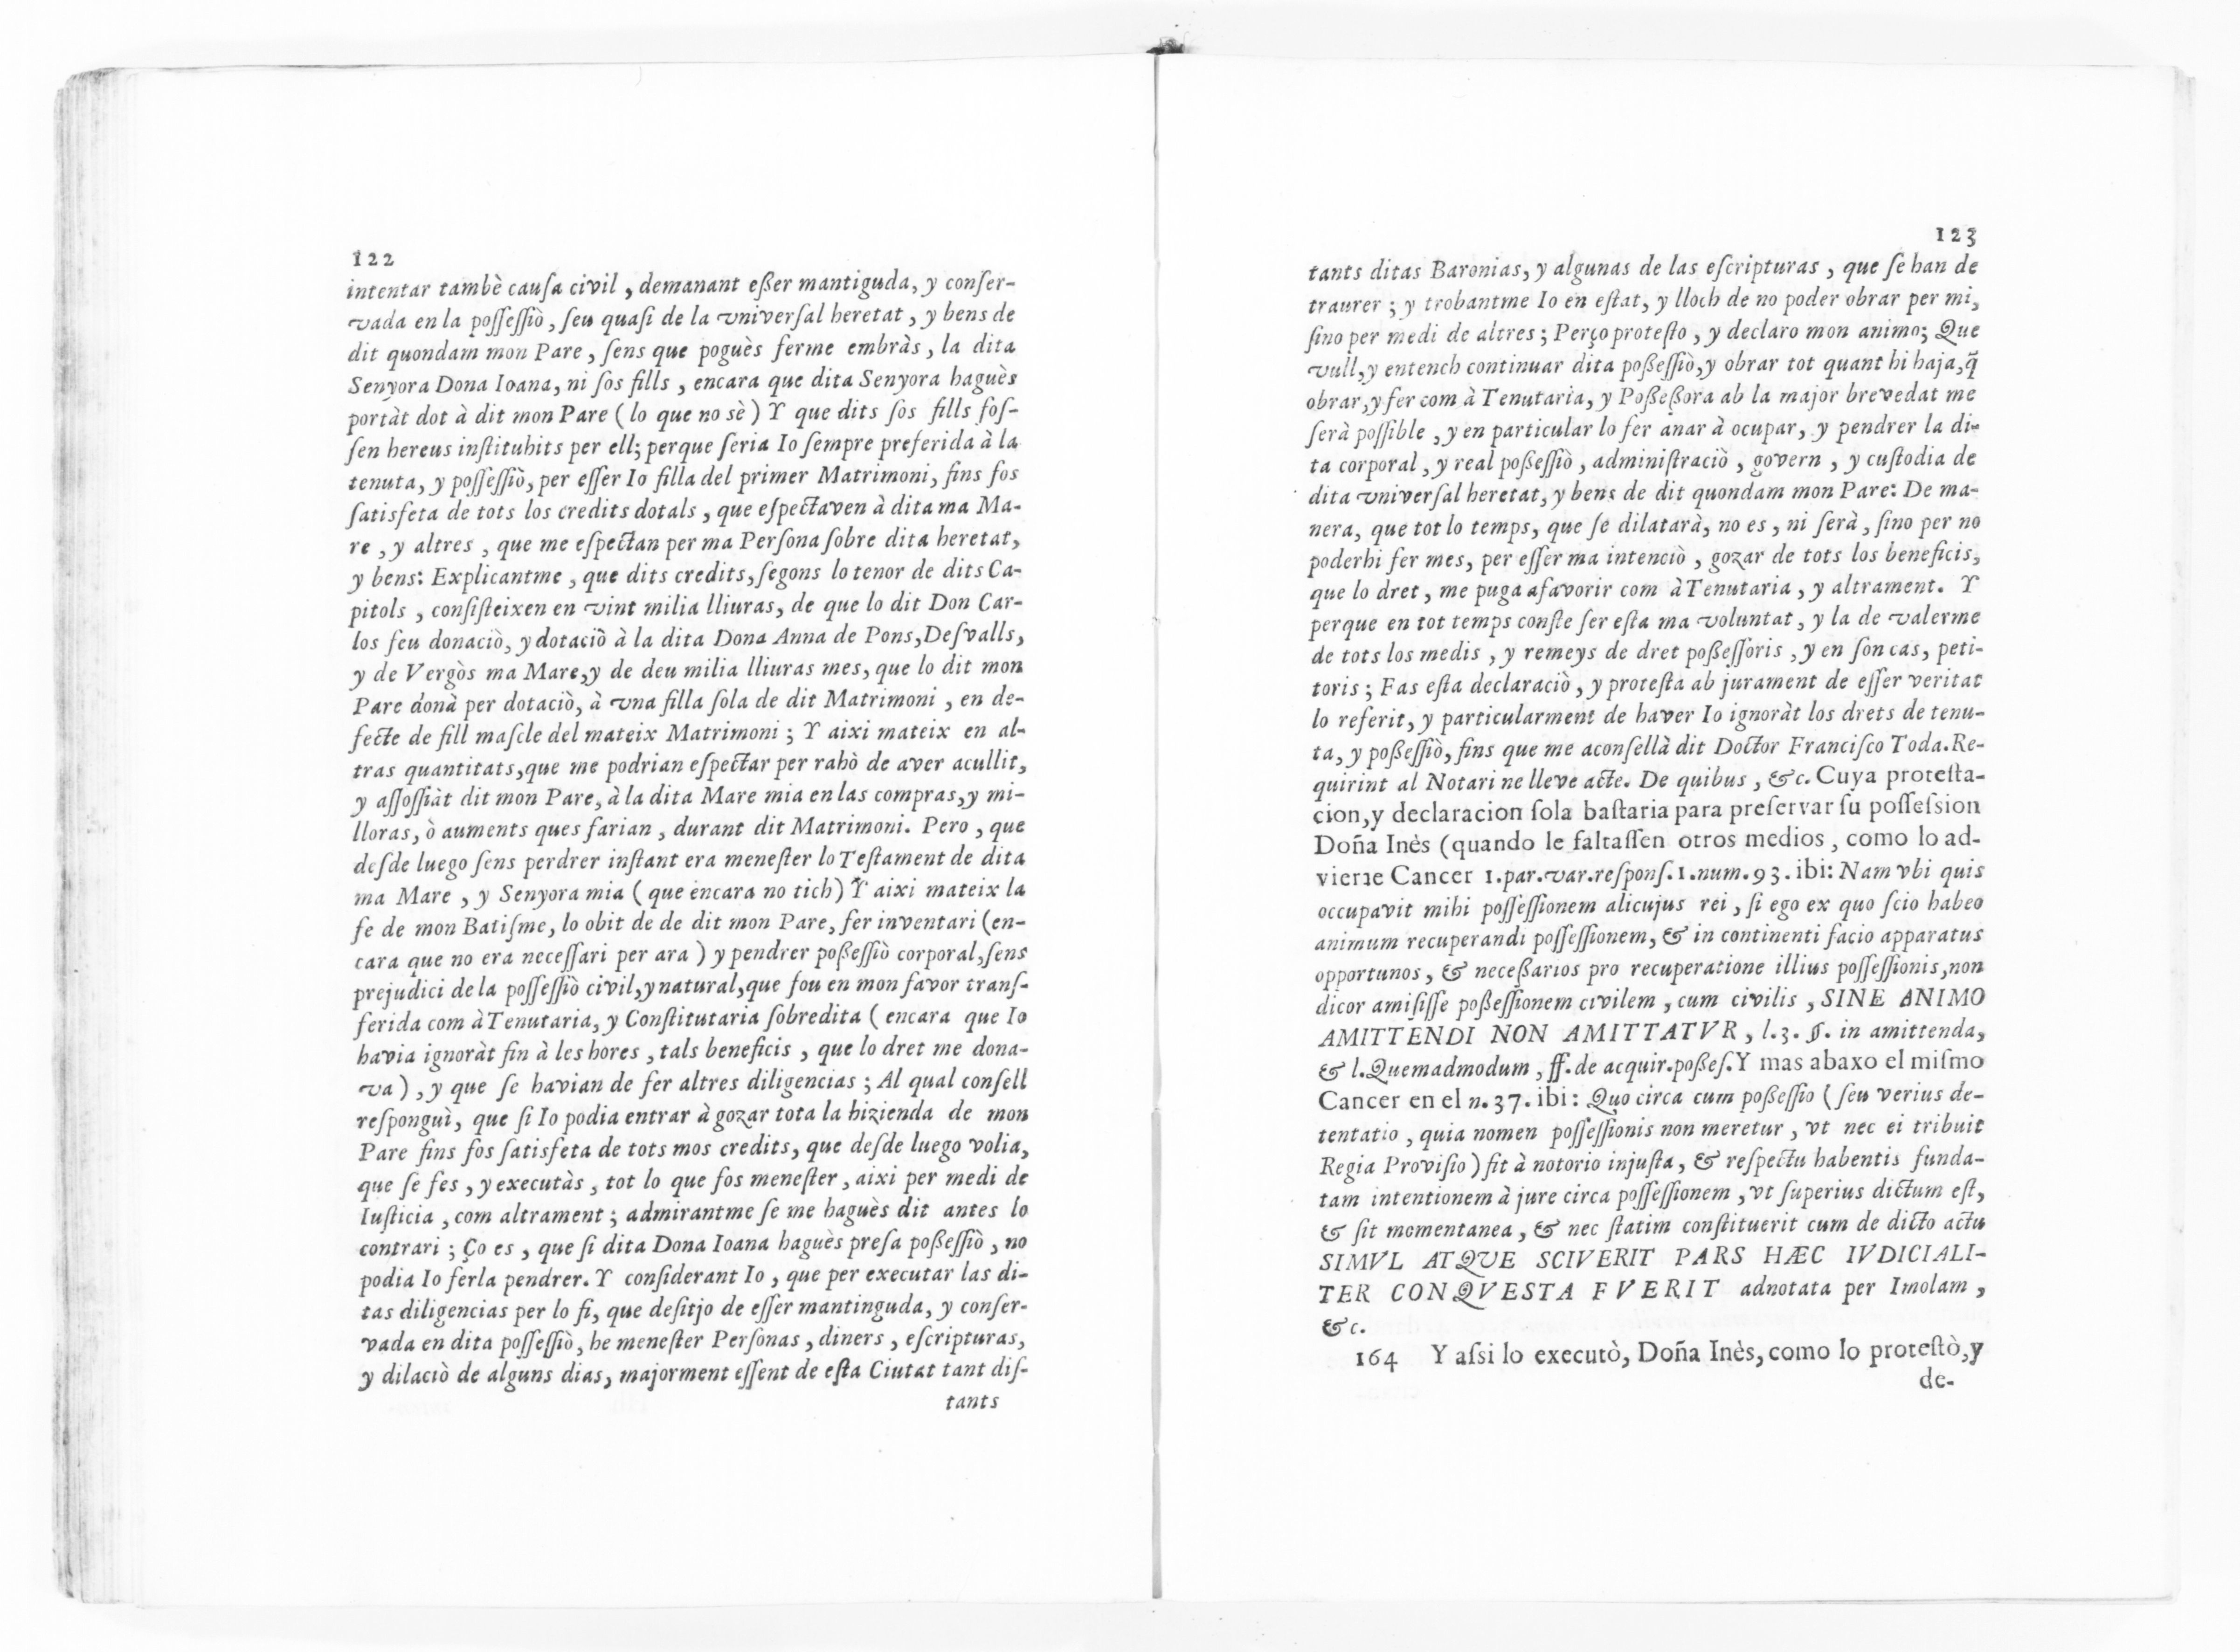 122
intentar tambè cauſa civil, demanant eßer mantiguda, y conſer-
vada en la poſſeſſiò, ſeu quaſi de la vniverſal heretat, y bens de
dit quondam mon Pare, ſens que poguès ferme embràs, la dita
Senyora Dona Ioana, ni ſos fills, encara que dita Senyora haguès
portàt dot à dit mon Pare (lo que no sè) Y que dits ſos fills foſ-
ſen hereus inſtituhits per ell; perque ſeria Io ſempre preferida à la
tenuta, y poſſeſſiò, per eſſer Io filla del primer Matrimoni, fins fos
ſatisfeta de tots los credits dotals, que eſpectaven à dita ma Ma-
re, y altres, que me eſpectan per ma Perſona ſobre dita heretat,
y bens: Explicantme, que dits credits, ſegons lo tenor de dits Ca-
pitols, conſiſteixen en vint milia lliuras, de que lo dit Don Car-
los feu donaciò, y dotaciò à la dita Dona Anna de Pons, Deſvalls,
y de Vergòs ma Mare, y de deu milia lliuras mes, que lo dit mon
Pare donà per dotaciò, à vna filla ſola de dit Matrimoni, en de-
fecte de fill maſcle del mateix Matrimoni; Y aixi mateix en al-
tras quantitats, que me podrian eſpectar per rahò de aver acullit,
y aſſoſſiàt dit mon Pare, à la dita Mare mia en las compras, y mi-
lloras, ò auments ques farian, durant dit Matrimoni. Pero, que
deſde luego ſens perdrer inſtant era meneſter lo Teſtament de dita
ma Mare, y Senyora mia (que encara no tich) Y aixi mateix la
fe de mon Batiſme, lo obit de de dit mon Pare, fer inventari (en-
cara que no era neceſſari per ara) y pendrer poßeſſiò corporal, ſens
prejudici de la poſſeſſiò civil, y natural, que fou en mon favor tranſ-
ferida com à Tenutaria, y Conſtitutaria ſobredita (encara que Io
havia ignoràt fin à les hores, tals beneficis, que lo dret me dona-
va), y que ſe havian de fer altres diligencias; Al qual conſell
reſponguì, que ſi Io podia entrar à gozar tota la hizienda de mon
Pare fins fos ſatisfeta de tots mos credits, que deſde luego volia,
que ſe fes, y executàs, tot lo que fos meneſter, aixi per medi de
Iuſticia, com altrament; admirantme ſe me haguès dit antes lo
contrari; Ço es, que ſi dita Dona Ioana haguès preſa poßeſſiò, no
podia Io ferla pendrer. Y conſiderant Io, que per executar las di-
tas diligencias per lo fi, que deſitjo de eſſer mantinguda, y conſer-
vada en dita poſſeſſiò, he meneſter Perſonas, diners, eſcripturas,
y dilaciò de alguns dias, majorment eſſent de eſta Ciutat tant diſ-
tants
123
tants ditas Baronias, y algunas de las eſcripturas, que ſe han de
traurer; y trobantme Io en eſtat, y lloch de no poder obrar per mi,
ſino per medi de altres; Perço proteſto, y declaro mon animo; Que
vull, y entench continuar dita poßeſſiò, y obrar tot quant hi haja, q̃
obrar, y fer com à Tenutaria, y Poßeßora ab la major brevedat me
ſerà poſſible, y en particular lo fer anar à ocupar, y pendrer la di-
ta corporal, y real poßeſſiò, adminiſtraciò, govern, y cuſtodia de
dita vniverſal heretat, y bens de dit quondam mon Pare: De ma-
nera, que tot lo temps, que ſe dilatarà, no es, ni ſerà, ſino per no
poderhi fer mes, per eſſer ma intenciò, gozar de tots los beneficis,
que lo dret, me puga afavorir com à Tenutaria, y altrament. Y
perque en tot temps conſte ſer eſta ma voluntat, y la de valerme
de tots los medis, y remeys de dret poßeſſoris, y en ſon cas, peti-
toris; Fas eſta declaraciò, y proteſta ab jurament de eſſer veritat
lo referit, y particularment de haver Io ignoràt los drets de tenu-
ta, y poßeſſiò, fins que me aconſellà dit Doctor Franciſco Toda. Re-
quirint al Notari ne lleve acte. De quibus, &c. Cuya proteſta-
cion, y declaracion ſola baſtaria para preſervar ſu poſſeſsion
Doña Inès (quando le faltaſſen otros medios, como lo ad-
vierte Cancer 1. par. var. reſponſ. 1. num. 93. ibi: Nam vbi quis
occupavit mihi poſſeſſionem alicujus rei, ſi ego ex quo ſcio habeo
animum recuperandi poſſeſſionem, & in continenti facio apparatus
opportunos, & neceßarios pro recuperatione illius poſſeſſionis, non
dicor amiſiſſe poßeſſionem civilem, cum civilis, SINE ANIMO
AMITTENDI NON AMITTATVR, l. 3. §. in amittenda,
& l. Quemadmodum, ff. de acquir. poßeſ. Y mas abaxo el miſmo
Cancer en el n. 37. ibi: Quo circa cum poßeſſio (ſeu verius de-
tentatio, quia nomen poſſeſſionis non meretur, vt nec ei tribuit
Regia Proviſio) fit à notorio injuſta, & reſpectu habentis funda-
tam intentionem à jure circa poſſeſſionem, vt ſuperius dictum eſt,
& ſit momentanea, & nec ſtatim conſtituerit cum de dicto actu
SIMVL ATQVE SCIVERIT PARS HÆC IVDICIALI-
TER CONQVESTA FVERIT adnotata per Imolam,
&c.
164 Y aſsi lo executò, Doña Inès, como lo proteſtò, y
de-